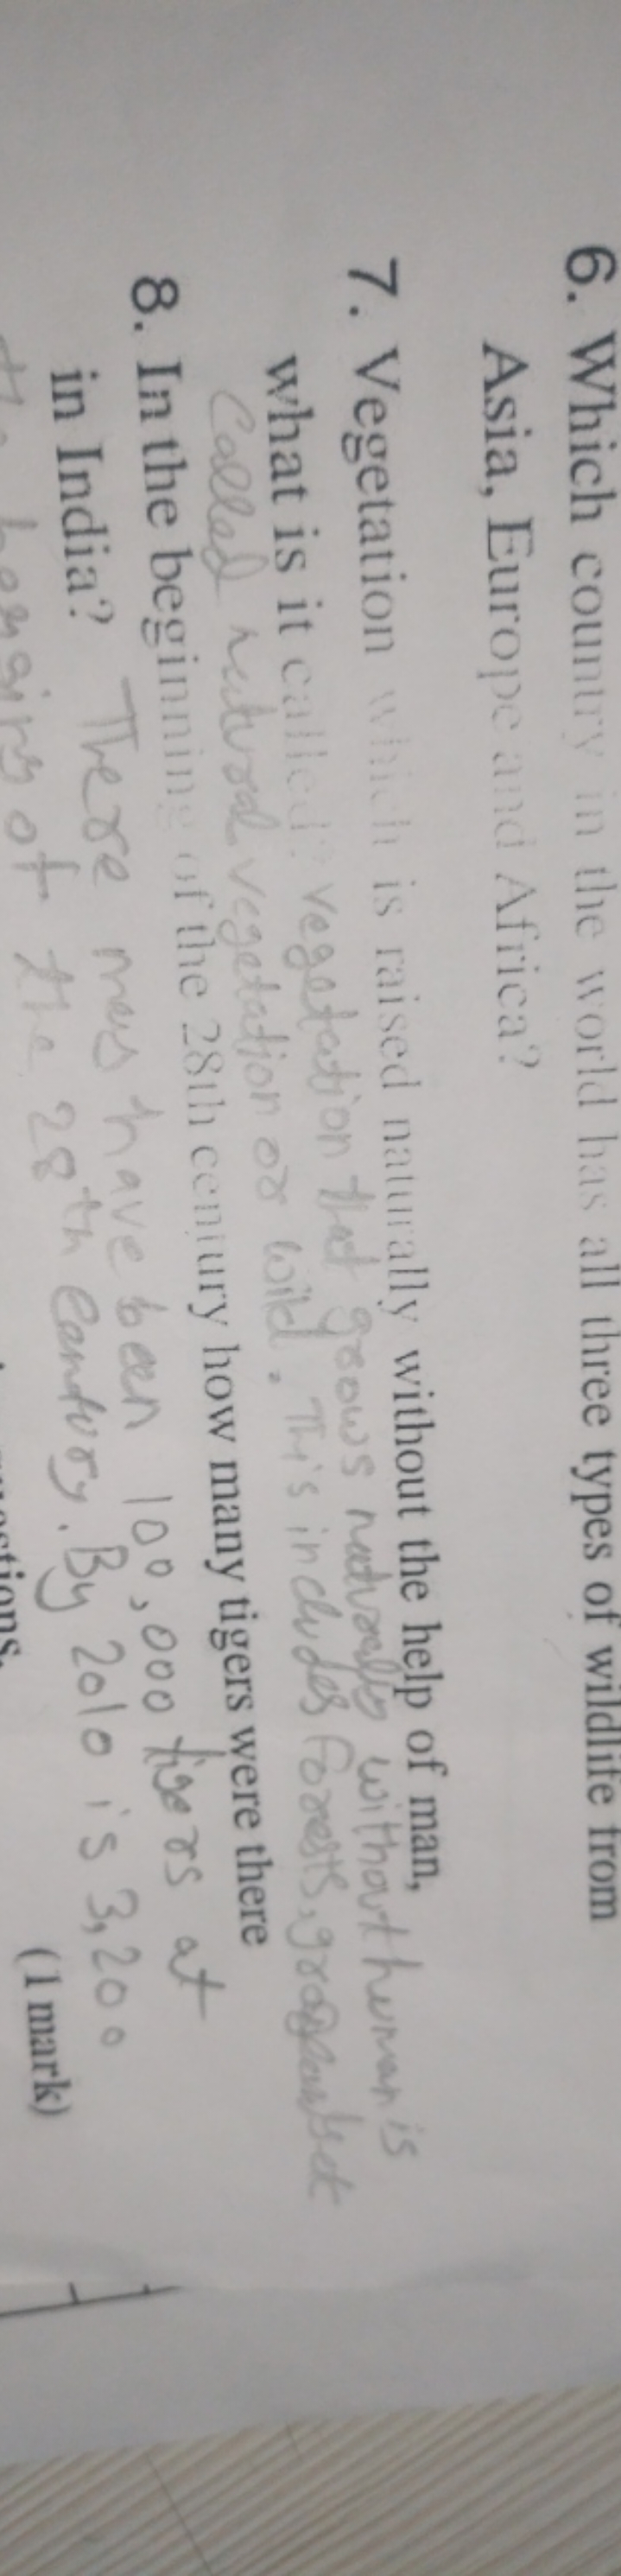 6. Which country in the world has all three types of wildlife from
Asia, Europe and Africa?
7. Vegetation which is raised naturally without the help of man,
what is it called? vegetation that grows naturally without human is
called natural vegetation or wild. This includes forests,
8. In the beginning of the 28th century how many tigers were there
in India? There may have been 100,000 tigers at
the of the 28th century. By 2010 is 3,200
(1 mark)